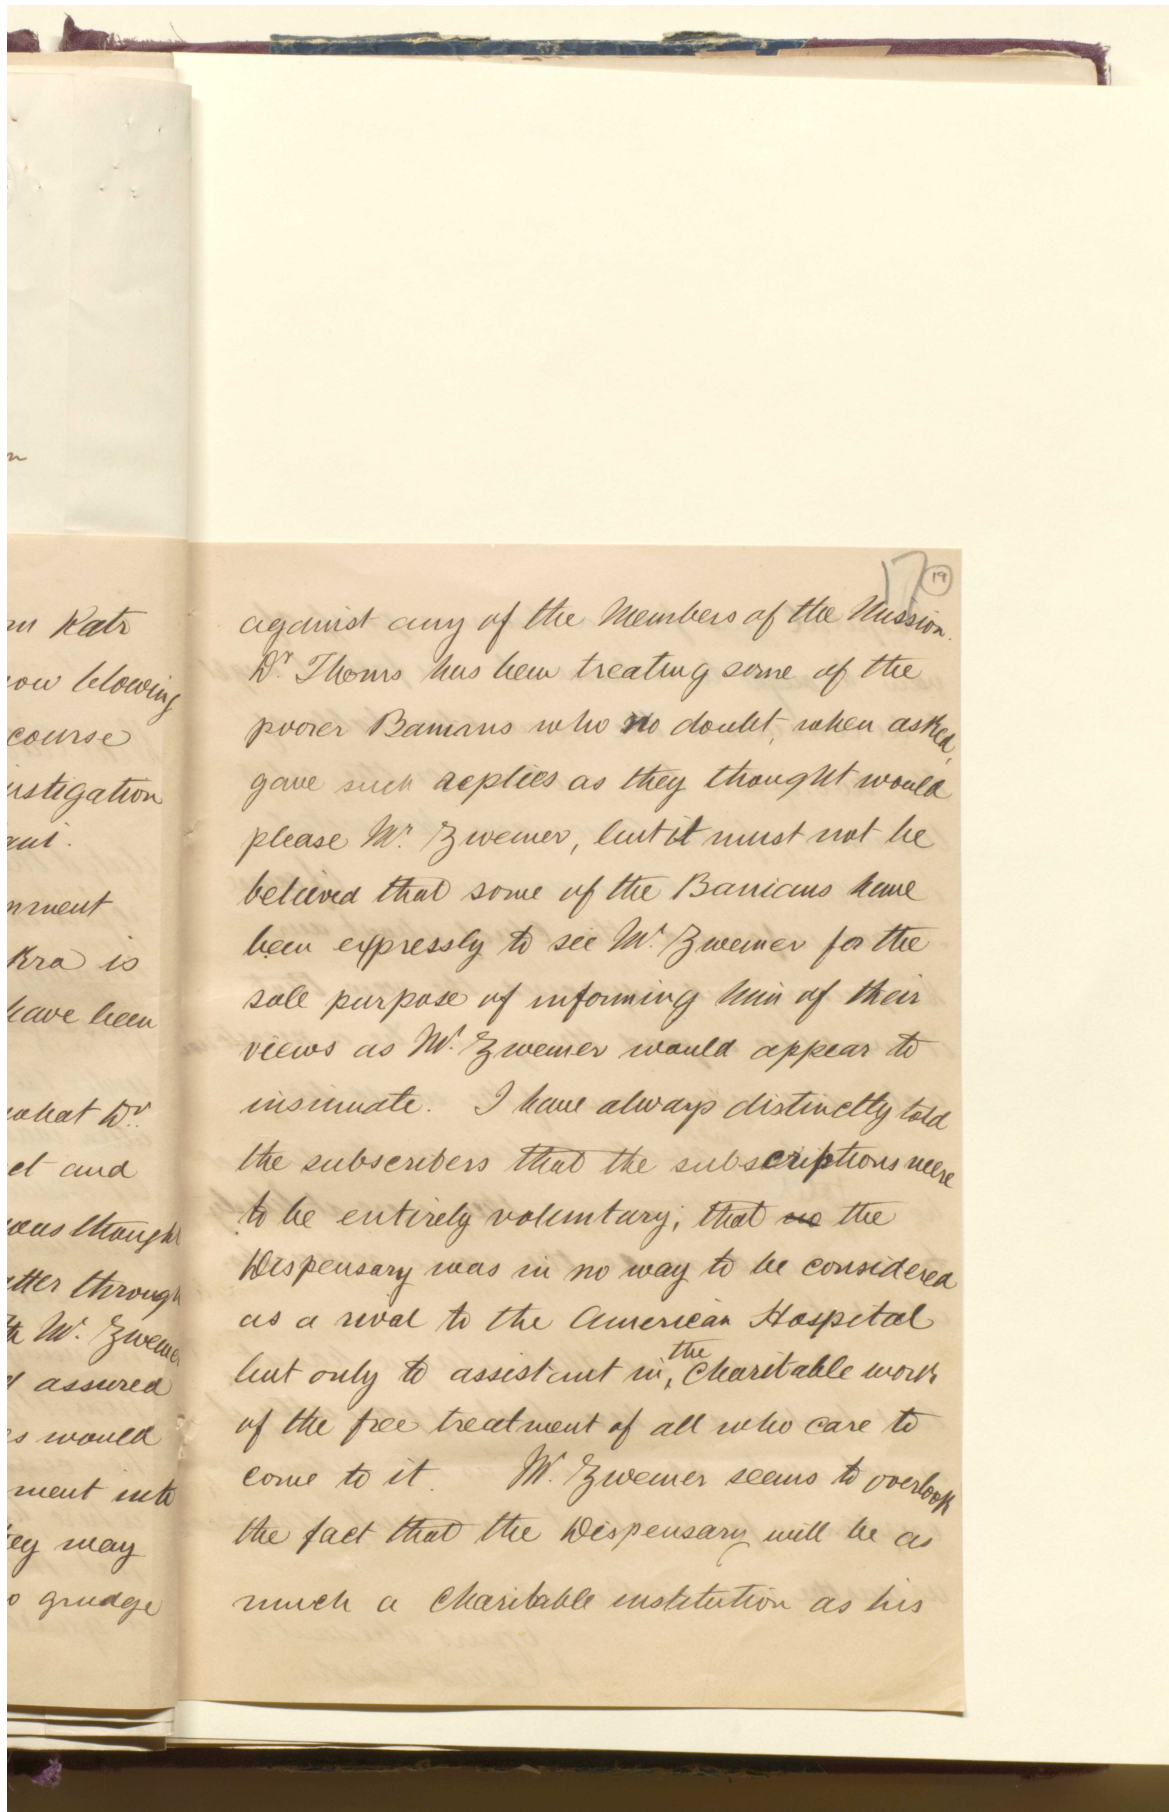 n
Katr
blowing
course
nment
Kra is
have been
what Dr.
and
was though
through
Mr. Zweme
assured
would
ment into
may
grudge
17
19
against any of the Members of the Mission.
Dr. Thoms has been treating some of the
poorer Banians who no doubt, when asked,
gave such replies as they thought would
please Mr. Zwemer, but it must not be
believed that some of the Banians have
been expressly to see Mr. Zwemer for the
sole purpose of informing him of their
views as Mr. Zwemer would appear to
insinuate. I have always distinctly told
the subscribers that the subscriptions were
to be entirely voluntary; that no the
Dispensary was in no way to be considered
as a rival to the American Hospital
but only to assist in the Charitable work
of the free treatment of all who care to
come to it. Mr. Zwemer seems to overlook
the fact that the Dispensary will be as
much a Charitable institution as his